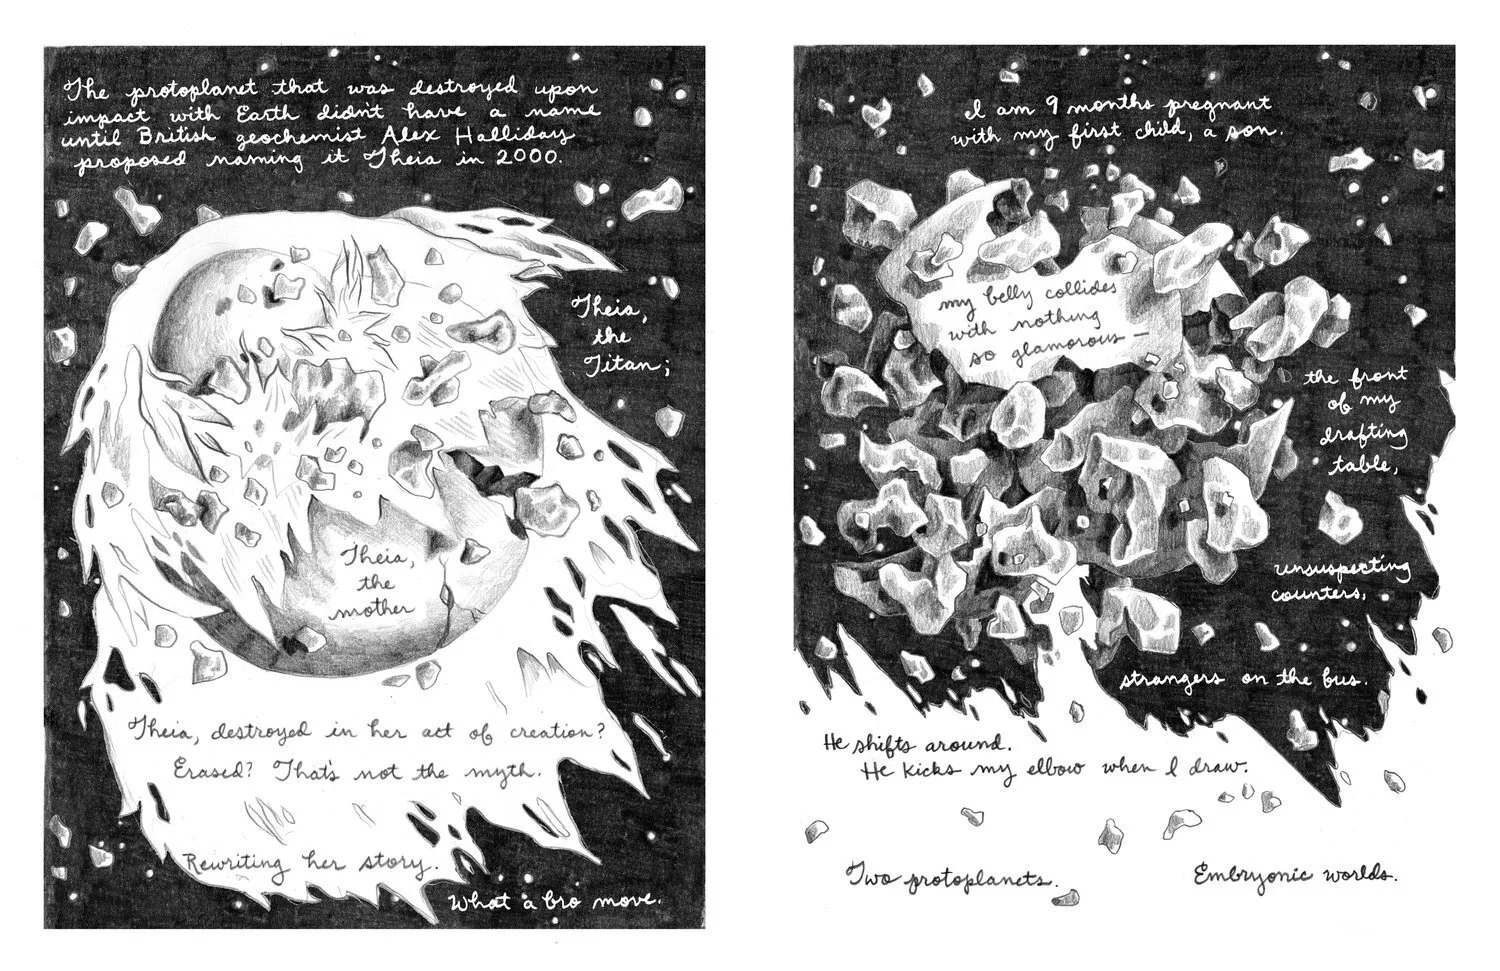 The protoplanet that was destroyed upon
impact with Earth didn't have a name
until British geochemist Alex Halliday
proposed naming it Theia in 2000.
Theia,
the
Titan;
Theia,
the
mother
Theia, destroyed in her act of creation?
Erased? That's not the myth.
Rewriting her story.
What a bro move.
I am 9 months pregnant
with my first child, a son.
my belly collides
with nothing
so glamorous —
the front
of my
drafting
table,
unsuspecting
counters,
strangers on the bus.
He shifts around.
He kicks my elbow when I draw.
Two protoplanets.
Embryonic worlds.